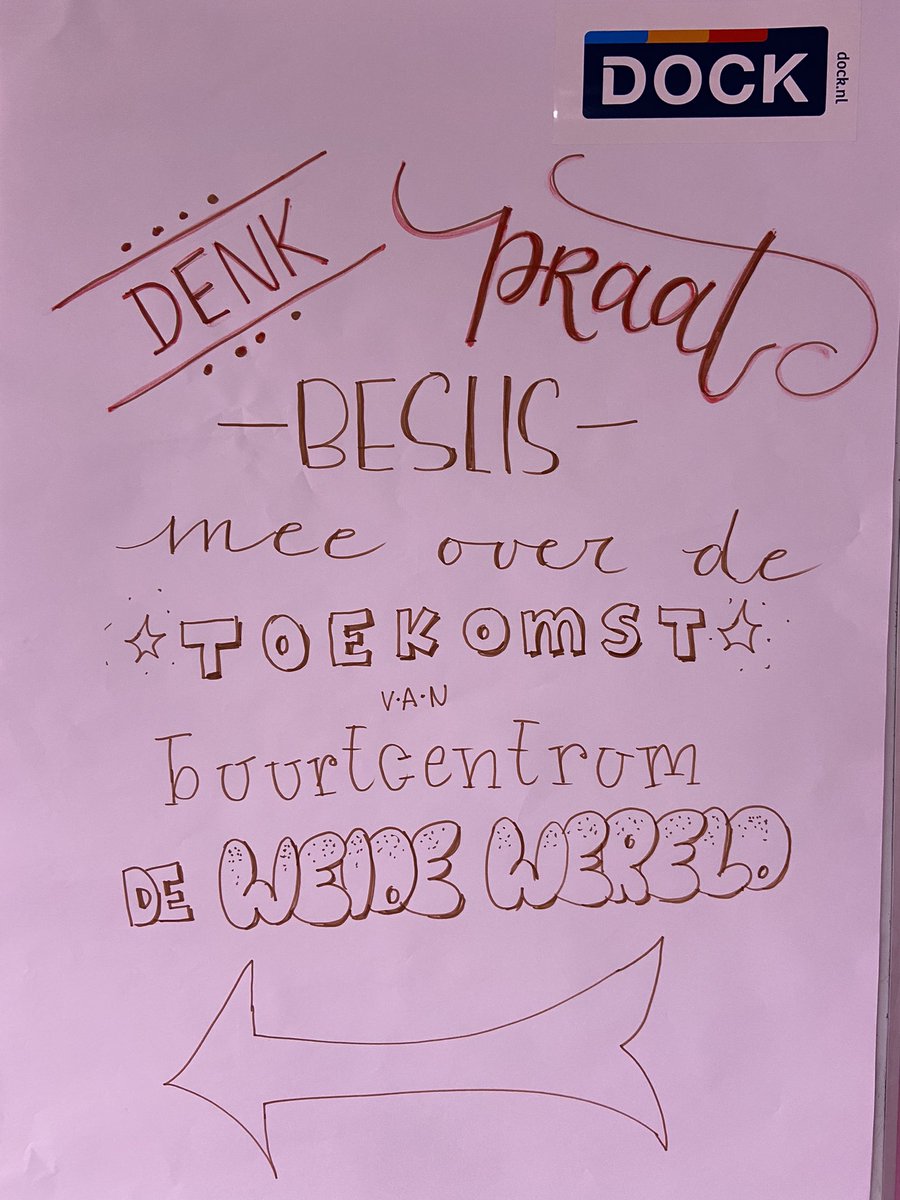 DOCK
dock.nl
DENK praat
-BESLIS-
mee over de
TOEKOMST
V·A·N
buurtcentrum
DE WEIDE WERELD